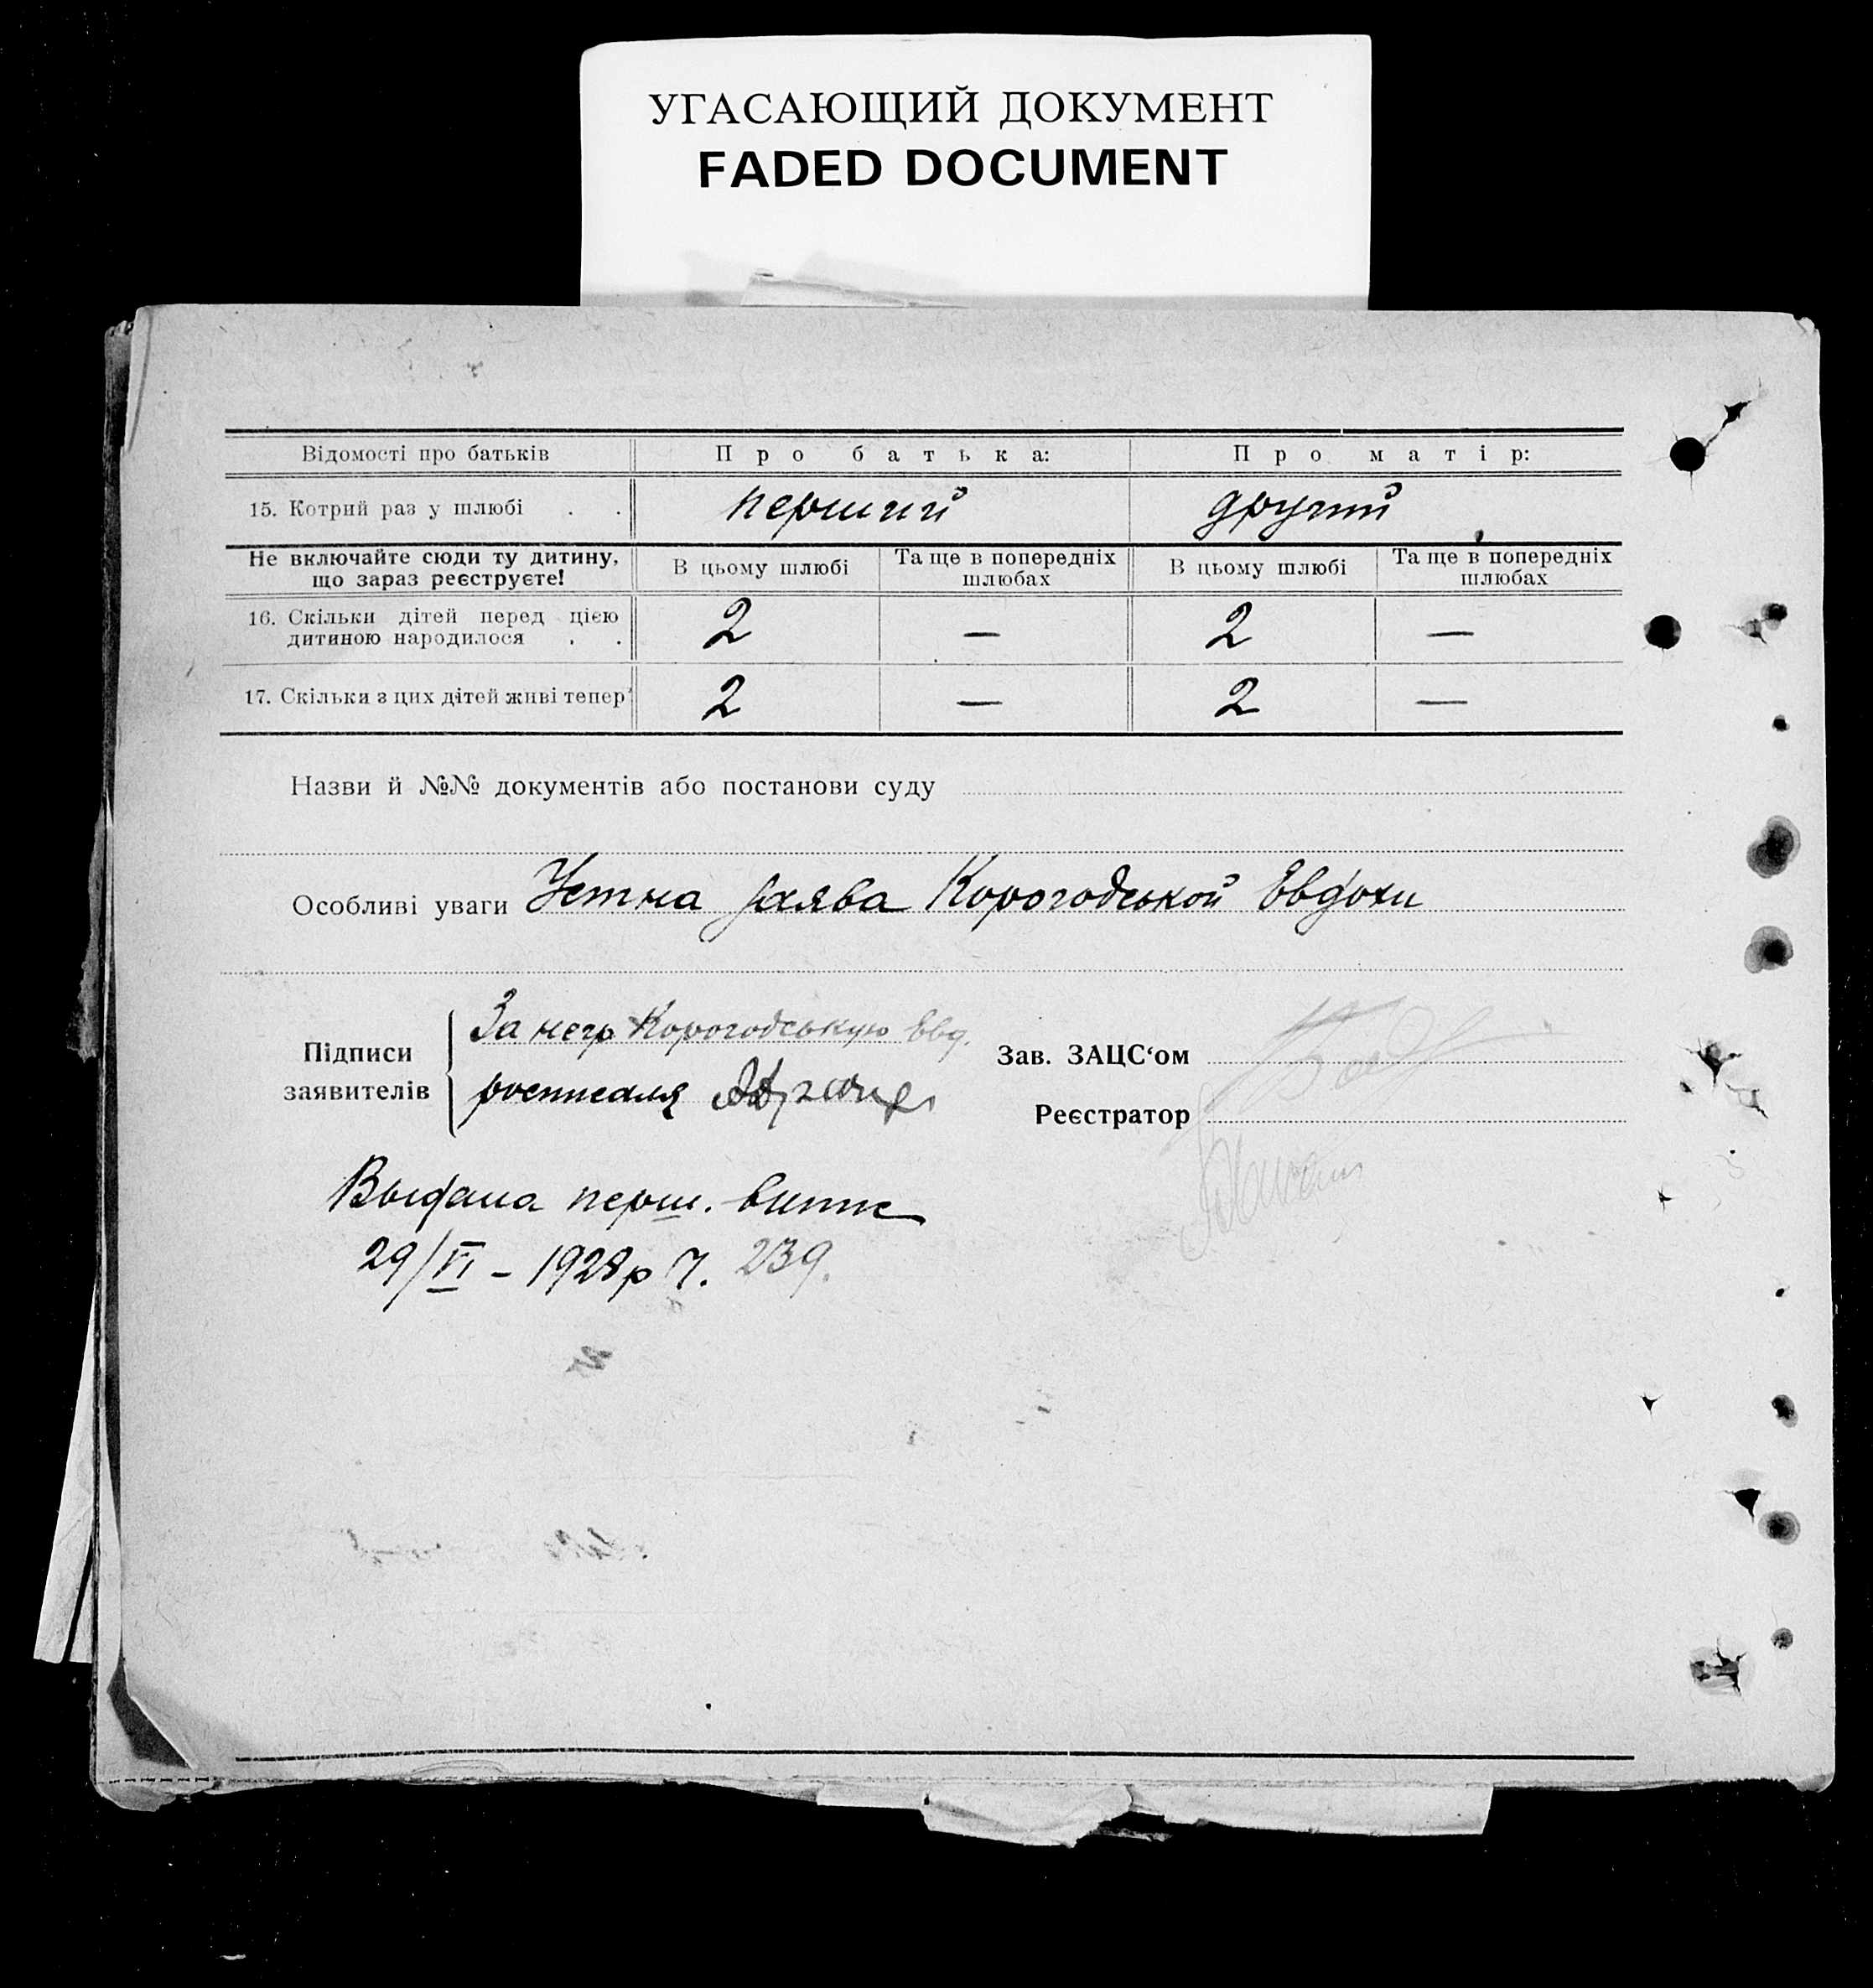 УГАСАЮЩИЙ ДОКУМЕНТ
FADED DOCUMENT
Відомості про батьків Про батька: Про матір:
15. Котрий раз у шлюбі . . перший другий
Не включайте сюди ту дитину, що зараз реєструєте! В цьому шлюбі Та ще в попередніх шлюбах В цьому шлюбі Та ще в попередніх шлюбах
16. Скільки дітей перед цією дитиною народилося . . 2 — 2 —
17. Скільки з цих дітей живі тепер 2 — 2 —
Назви й №№ документів або постанови суду
Особливі уваги Устна заява Корогодської Евдохи
Підписи заявителів
За негр Корогодську Евд.
росписался
Зав. ЗАЦС‘ом
Реєстратор
Выдана перш. випис
29/VI – 1928р Ч. 239.